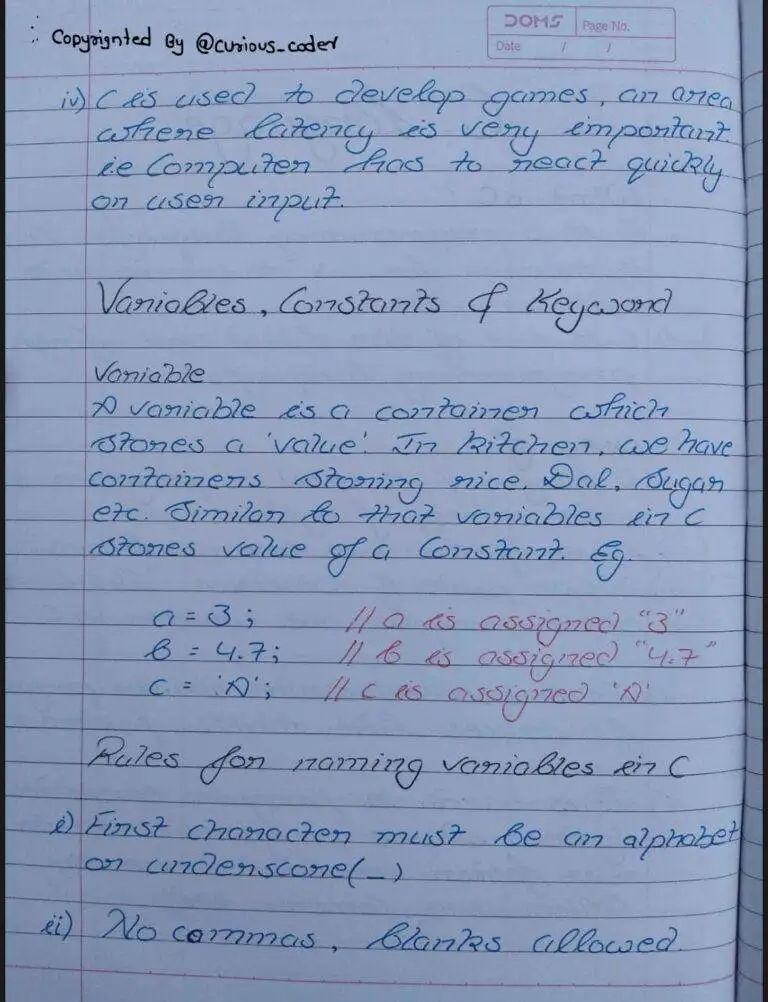 ∴ Copyrignted By @curious_coder
DOMS Page No.
Date / /
iv) C is used to develop games, an area
where latency is very important
ie Computer has to react quickly
on user input.
Variables, Constants & Keyword
Variable
A variable is a container which
stores a 'value'. In kitchen, we have
containers storing rice, Dal, Sugar
etc. Similar to that variables in C
stores value of a Constant. Eg.
a = 3; // a is assigned "3"
b = 4.7; // b is assigned "4.7"
c = 'A'; // c is assigned 'A'
Rules for naming variables in C
i) First character must be an alphabet
or underscore(_)
ii) No commas, blanks allowed.